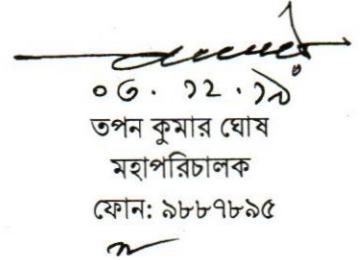 ০৩. ১২. ১৯
তপন কুমার ঘোষ
মহাপরিচালক
ফোন: ৯৮৮৭৮৯৫